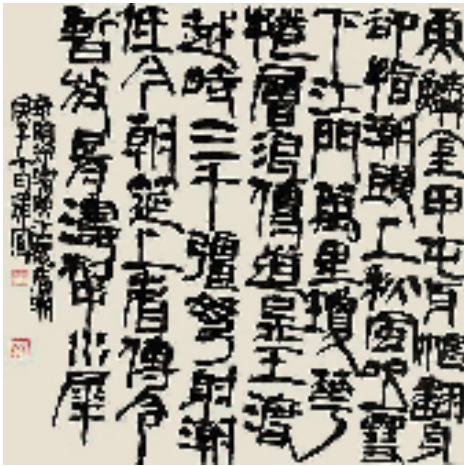 魚鱗金甲屯牙帳翻身
却指潮頭上秋風吹雪
下江門萬里瓊花
捲層浪傳道吳王渡
越時三千彊弩射潮
低今朝筵上看傳令
暫放胥濤掣水犀